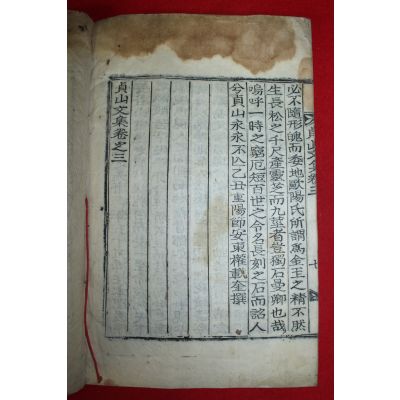 貞山文集卷三
七
必不隨形魄而委地歐陽氏所謂爲金玉之精不然
生長松之千尺產靈芝而九莖者豈獨石曼卿也哉
嗚呼一時之窮厄短百世之令名長刻之石而詔人
兮貞山永永不亾乙丑重陽節安東權載奎撰
貞山文集卷之三